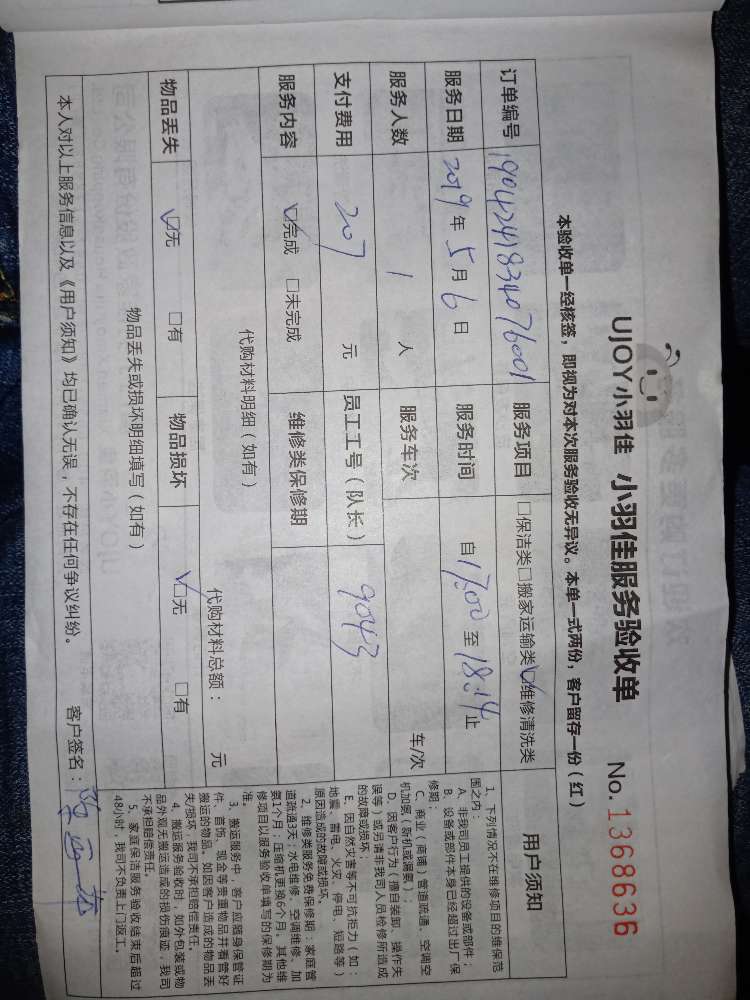 UJOY小羽佳 小羽佳服务验收单 No. 1368636
本验收单一经核签，即视为对本次服务验收无异议。本单一式两份，客户留存一份（红）
订单编号 1904241834076001 服务项目 □保洁类□搬家运输类☑维修清洗类
服务日期 2019年5月6日 服务时间 自17:00至18:14止
服务人数 1 人 服务车次 车/次
支付费用 207 元 员工工号（队长） 9043
服务内容 ☑完成 □未完成 维修类保修期
代购材料明细（如有）
代购材料总额： 元
物品丢失 ☑无 □有 物品损坏 ☑无 □有
物品丢失或损坏明细填写（如有）
本人对以上服务信息以及《用户须知》均已确认无误，不存在任何争议纠纷。 客户签名：
用户须知
1、下列情况不在维修项目的维保范
围之内：
A、非我司员工提供的设备或部件；
B、设备或部件本身已经超过出厂保
修期；
C、商业（商铺）管道疏通、空调空
机加氨（新机或漏氨）；
D、因客户行为（擅自装卸、操作失
误等）或另请非我司人员检修所造成
的故障或损坏
E、因自然灾害等不可抗拒力（如：
地震、雷电、火灾、停电、短路等）
原因造成的故障或损坏。
2、维修类服务免费保修期：家庭管
道疏通3天；水电维修、空调维修、加
氨1个月；压缩机更换6个月。其他维
修项目以服务验收单填写的保修期为
准。
3、搬运服务中，客户应随身保管证
件、首饰、现金等贵重物品并看管好
搬运的物品。如因客户造成的物品丢
失/损坏，我司不承担赔偿责任。
4、搬运服务验收时，如外包装或物
品外观无搬运造成的损伤痕迹，我司
不承担赔偿责任。
5、家庭保洁服务验收结束后超过
48小时，我司不负责上门返工。